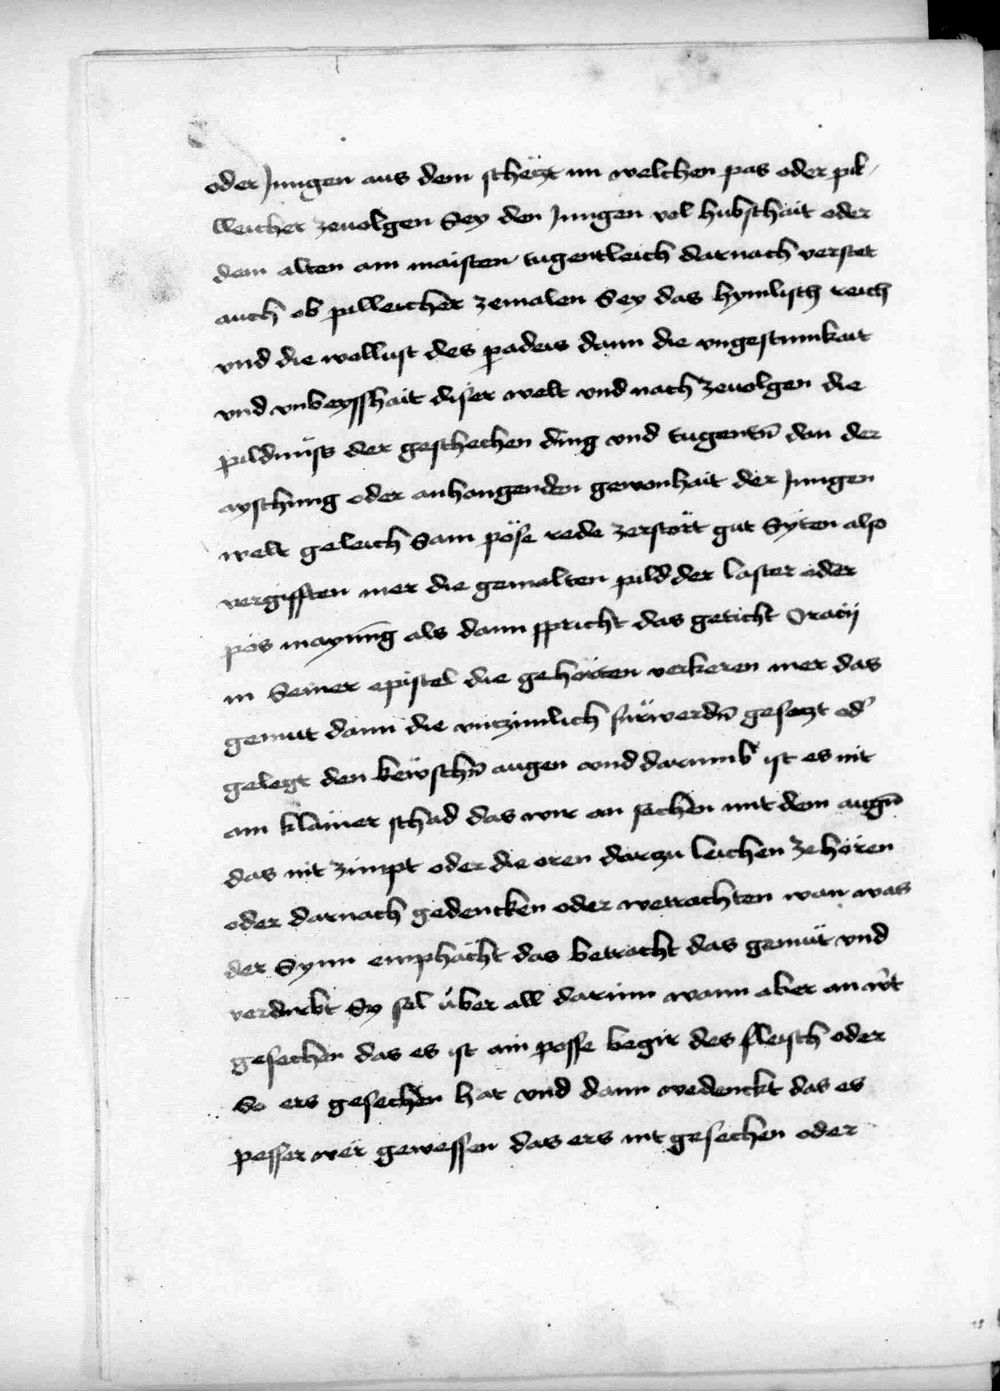 oder Jungen aus dem schetzt im welchen pas oder pil-
lleicher zeuolgen Sey den Jungen vol hubschait oder
dem alten am maisten tugentleich darnach verstet
auch ob pilleicher zemalen Sey das hymlisch reich
vnd die wollust des padeis dann die vngestumkait
vnd vnbeysshait diser welt vnd nach zeuolgen die
pildnüss der geschechen ding vnd tugentn̄ dan der
ayschung oder anhangenden gewonhait der Jungen
welt geleich Sam pöse rede zerstört gut Syten also
vergifften mer die gemalten pild der laster oder
pös maynūg als dann spricht das geticht Oracij
in Seiner epistel die gehörten verkeren mer das
gemut dann die vnzimlich fürwerdn̄ gesetzt od̕
gelegt den kewschn̄ augen vnd darumb ist es nit
ain klainer schad das wir an sechen mit dem augn̄
das nit zimpt oder die oren darzu leichen ze hören
oder darnach gedencken oder wetrachten wan was
der Synn emphächt das betracht das gemüt vnd
verdirbt Sy sel über all darinn wann aber an wirt
gesechen das es ist ain posse begir des fleisch oder
So ers gesechen hat vnd dann wedenckt das es
pesser wer gewessen das ers nit gesechen oder